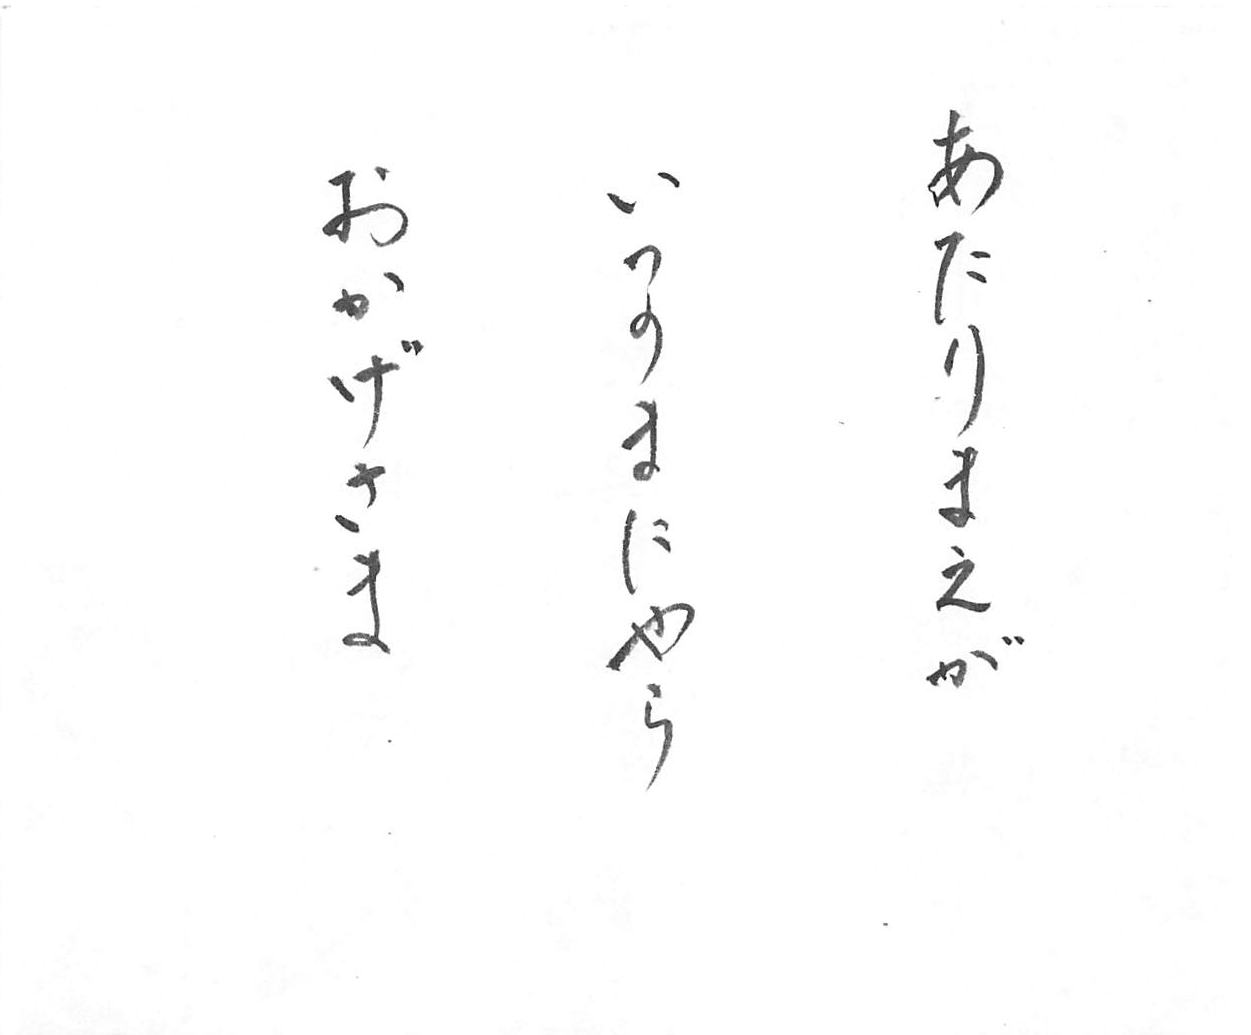 あたりまえが
いつのまにやら
おかげさま